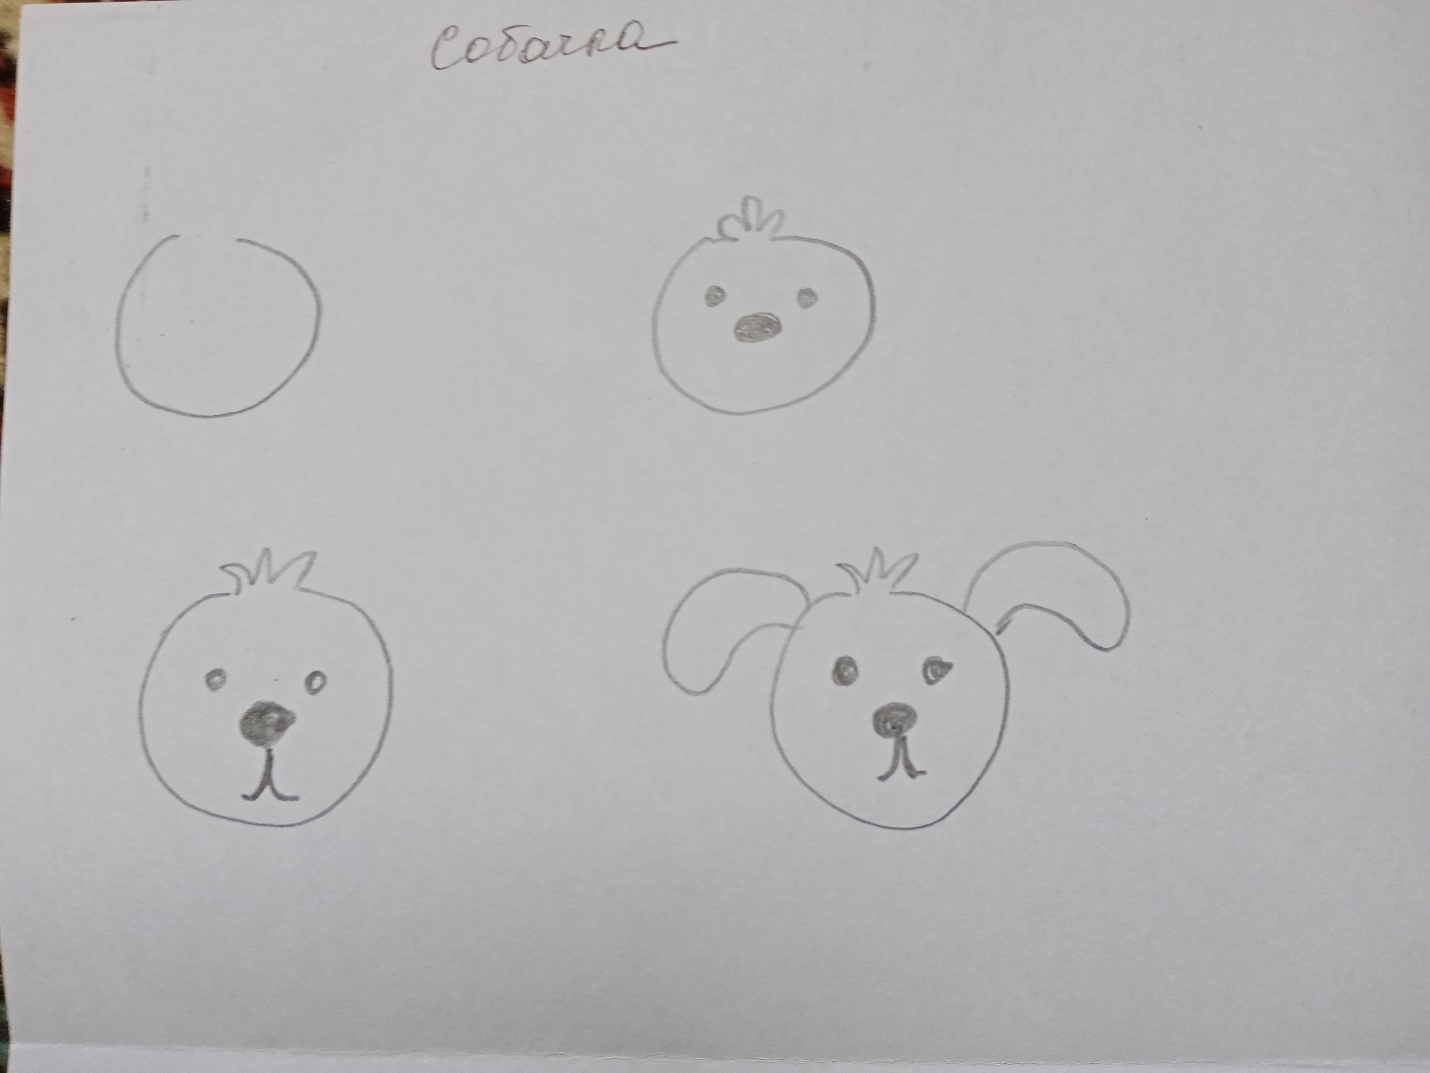 Собачка